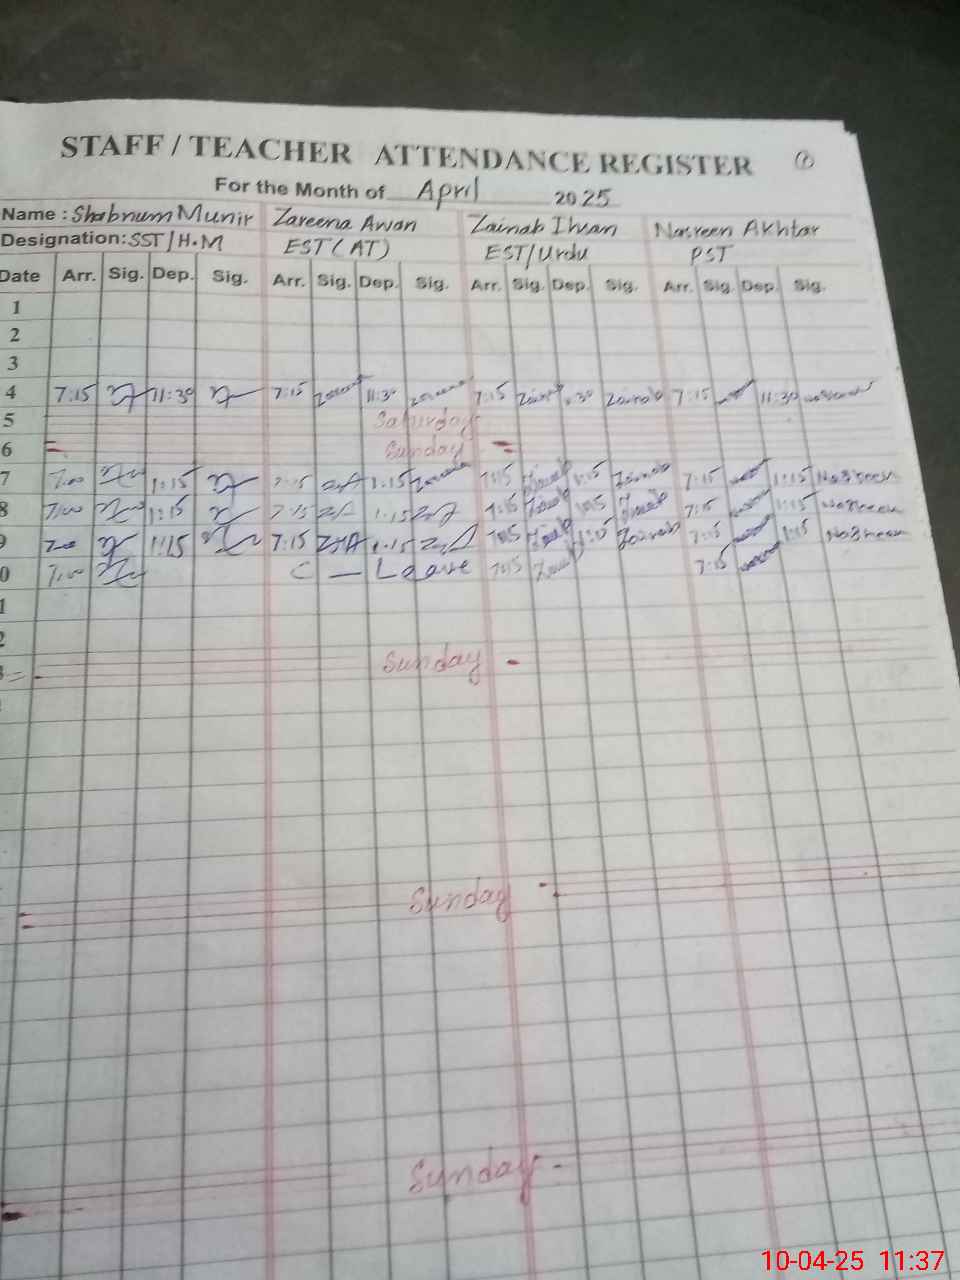 STAFF / TEACHER ATTENDANCE REGISTER
For the Month of April 2025
Name : Shabnum Munir Zareena Awan Zainab Nasreen Akhtar
Designation: SST/H.M EST(AT) EST/Urdu PST
Date Arr. Sig. Dep. Sig. Arr. Sig. Dep. Sig. Arr. Sig. Dep. Sig. Arr. Sig. Dep. Sig.
1
2
3
4 7:15 11:30 7:15 11:30 7:15 Zainab .30 Zainab 7:15 11:30
5 Saturday
6 Sunday =
7 7:00 1:15 7:15 1:15 7:15 Zainab 1:15 Zainab 7:15 1:15 Nasreen
8 7:00 1:15 7:15 ZA 1:15 ZA 7:15 Zainab 1:15 Zainab 7:15 1:15 Nasreen
9 7:00 1:15 7:15 1:15 7:15 Zainab 1:15 Zainab 7:15 1:15 Nasreen
0 7:00 C — Leave 7:15 7:15
1
2
Sunday -
Sunday -
Sunday -
10-04-25 11:37